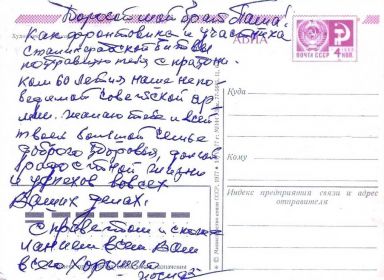 Дорогой мой брат Паша!
Как фронтовика и участника
сталинградской битвы
поздравляю тебя с праздни
ком 60 летия наше непо
бедимой советской ар
мии. Желаю тебе и всей
твоей большой семье
доброго здоровья, долгой
радостной жизни
и успехов во всех
Ваших делах.
С приветом и
всем Вам
всего хорошего
АВИА
ПОЧТА СССР
4 КОП
Куда
Кому
Индекс предприятия связи и адрес
отправителя